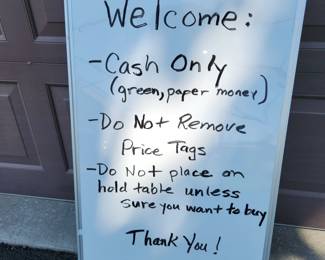 Welcome:
- Cash Only
(green, paper money)
- Do Not Remove
Price Tags
- Do Not place on
hold table unless
sure you want to buy
Thank You!